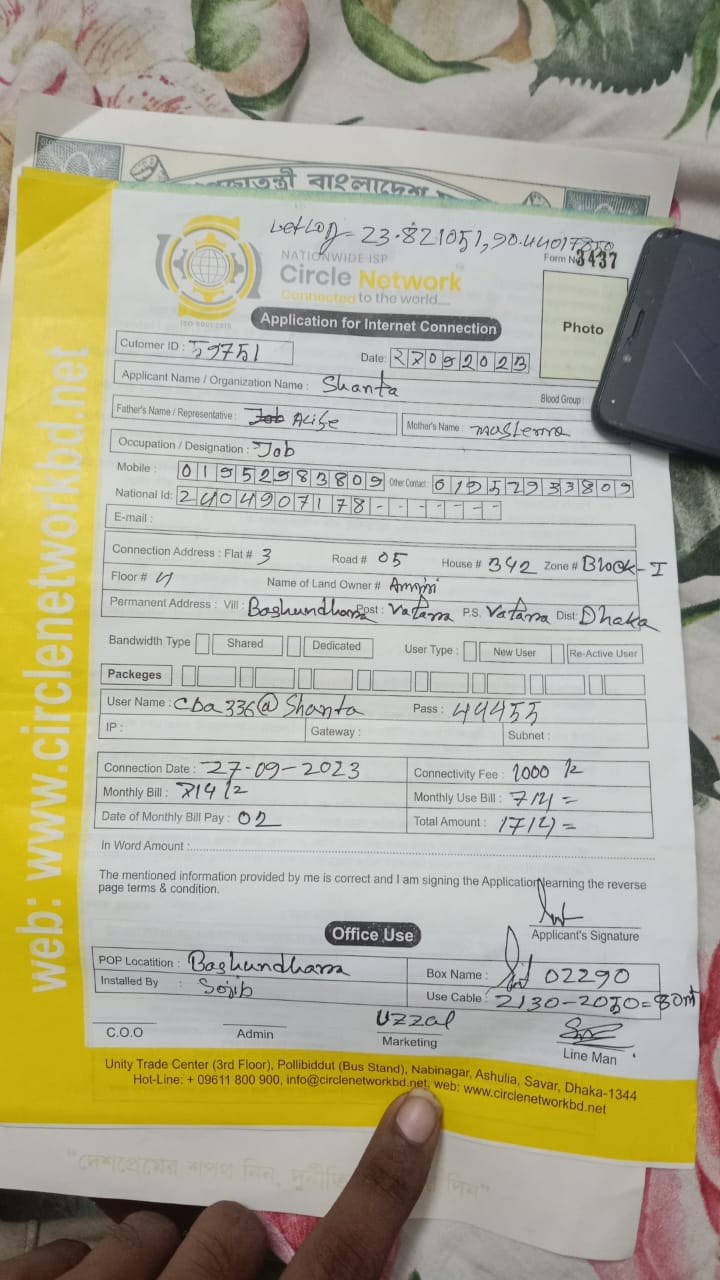 গণপ্রজাতন্ত্রী বাংলাদেশ
LetLog = 23.821051, 90.44017850
NATIONWIDE ISP
Circle Network
Connected to the world...
ISO 9001:2015
Form No 3437
Application for Internet Connection
Photo
Cutomer ID : 59751
Date: 27092023
Applicant Name / Organization Name : Shanta
Blood Group :
Father's Name / Representative :
Mother's Name :
Occupation / Designation : Job
Mobile : 01952983809 Other Contact :
National Id: 2404907178-------
E-mail :
Connection Address : Flat # 3 Road # 05 House # 342 Zone # Block-I
Floor # Name of Land Owner #
Permanent Address : Vill : Bashundhara Post : Vatara P.S. Vatara Dist: Dhaka
Bandwidth Type Shared Dedicated User Type : New User Re-Active User
Packeges
User Name : Cba336@Shanta Pass : 44455
IP : Gateway : Subnet :
Connection Date : 27-09-2023 Connectivity Fee : 1000
Monthly Bill : 714 Monthly Use Bill : 714 =
Date of Monthly Bill Pay : 02 Total Amount : 1714 =
In Word Amount :
The mentioned information provided by me is correct and I am signing the Application learning the reverse
page terms & condition.
Applicant's Signature
Office Use
POP Locatition : Bashundhara Box Name : 02290
Installed By : Sojib Use Cable : 2130-2050=80m
Uzzal
C.O.O Admin Marketing Line Man
Unity Trade Center (3rd Floor), Pollibiddut (Bus Stand), Nabinagar, Ashulia, Savar, Dhaka-1344
Hot-Line: + 09611 800 900, info@circlenetworkbd.net, web: www.circlenetworkbd.net
web: www.circlenetworkbd.net
"দেশপ্রেমের শপথ নিন, দুর্নীতি দিন"